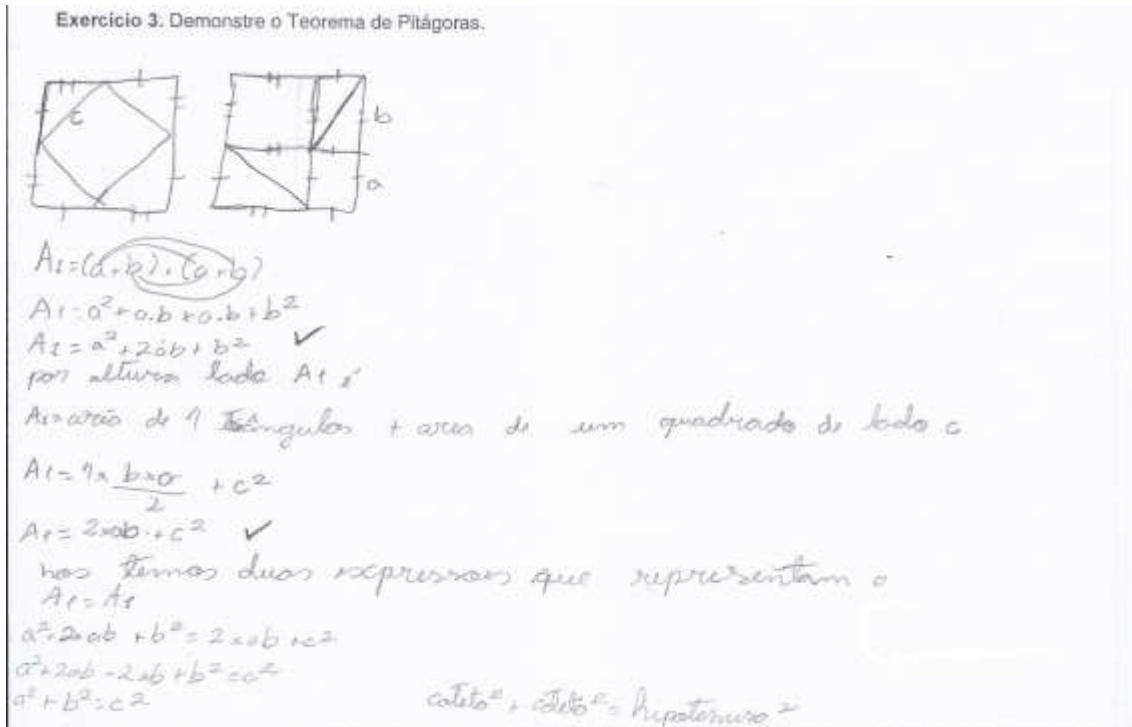 Exercício 3. Demonstre o Teorema de Pitágoras.
c
b
a
A1=(a+b).(a+b)
A1=a²+a.b+a.b+b²
A1=a²+2ab+b² ✓
por lado A1 é
A1= de 4 triângulos + area de um quadrado de lado c
A1=4x b×a/2 +c²
A1=2×ab+c² ✓
nos temos duas expressoes que representam o
A1=A1
a²+2×ab+b²=2×ab+c²
a²+2ab-2ab+b²=c²
a²+b²=c² cateto²+cateto²=hipotenusa²